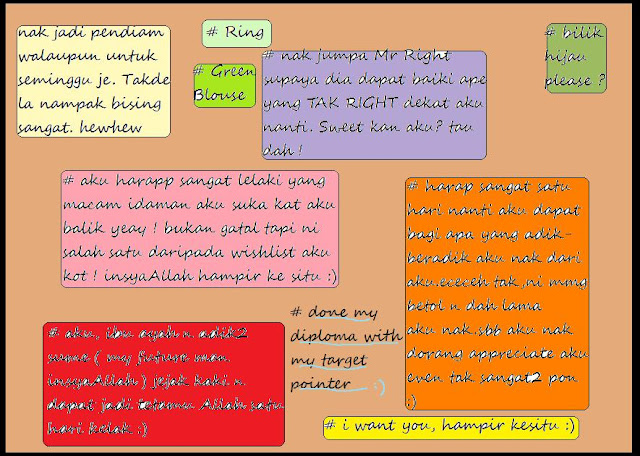 nak jadi pendiam
walaupun untuk
seminggu je. Takde
la nampak bising
sangat. hewhew
# Ring
# Green
Blouse
# nak jumpa Mr Right
supaya dia dapat baiki ape
yang TAK RIGHT dekat aku
nanti. Sweet kan aku? tau
dah !
# bilik
hijau
please ?
# aku harapp sangat lelaki yang
macam idaman aku suka kat aku
balik yeay ! bukan gatal tapi ni
salah satu daripada wishlist aku
kot ! insyaAllah hampir ke situ :)
# harap sangat satu
hari nanti aku dapat
bagi apa yang adik-
beradik aku nak dari
aku.ececeh tak,ni mmg
betol n dah lama
aku nak.sbb aku nak
dorang appreciate aku
even tak sangat2 pon
:)
# aku, ibu ayah n adik2
sume ( my future man
insyaAllah ) jejak kaki n
dapat jadi tetamu Allah satu
hari kelak :)
# done my
diploma with
my target
pointer :)
# i want you, hampir kesitu :)